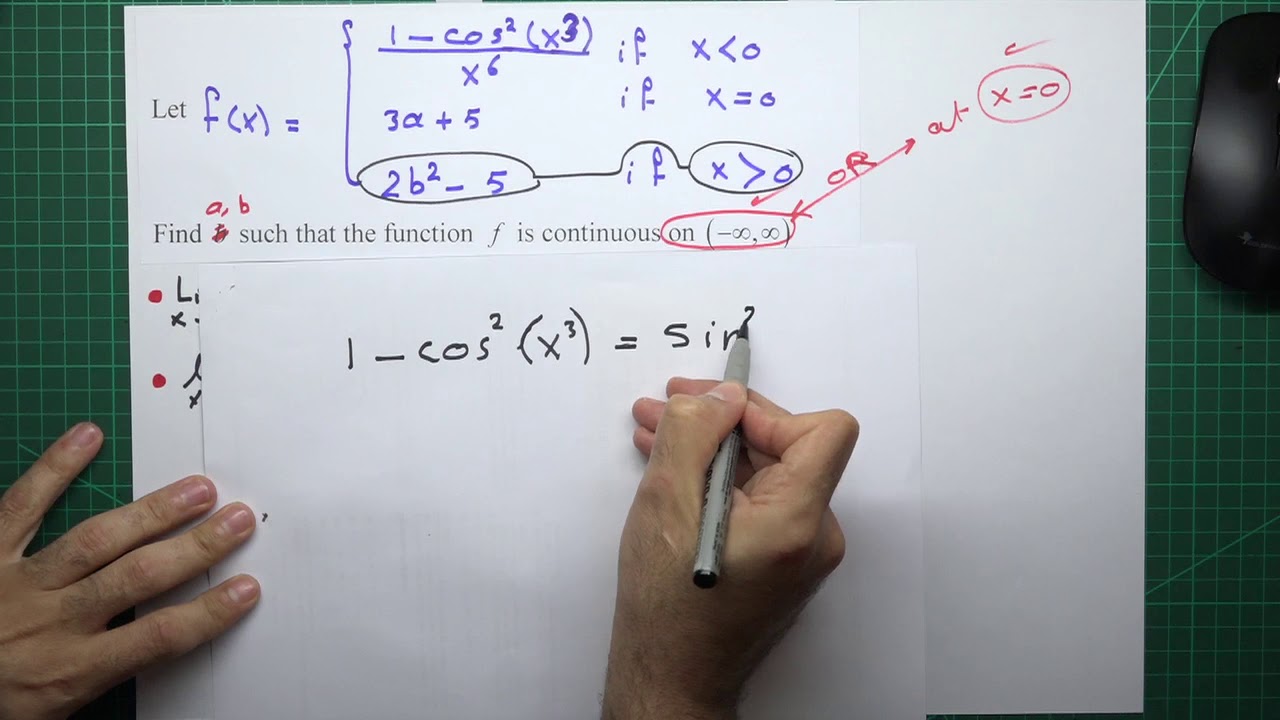 1 - cos² (x3) / x6 if x < 0
Let f(x) = 3a + 5 if x = 0
2b² - 5 if x > 0
OR at x = 0
a, b
Find such that the function f is continuous on (-∞, ∞)
1 - cos² (x³) = sin²